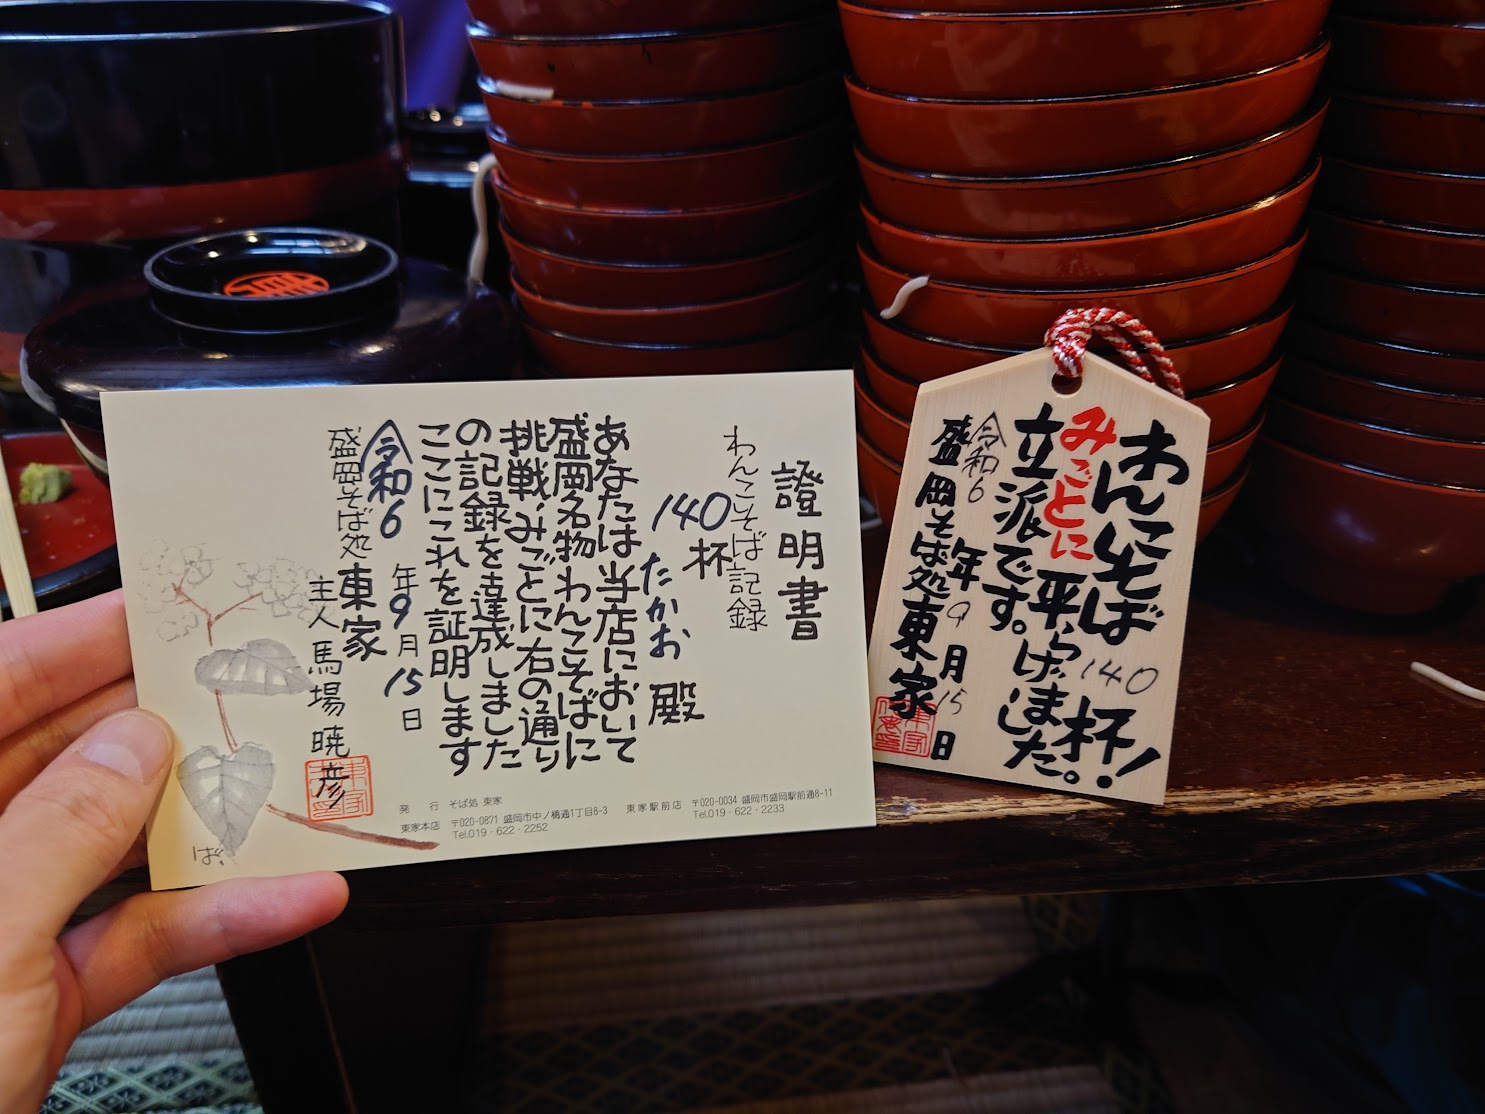 證明書
わんこそば記録
140杯
たかお 殿
あなたは当店において
盛岡名物わんこそばに
挑戦、みごとに右の通り
の記録を達成しました
ここにこれを証明します
令和6年9月15日
盛岡そば処 東家
主人 馬場暁彦
ば、
発 行 そば処 東家
東家本店 〒020-0871 盛岡市中ノ橋通1丁目8-3
Tel.019・622・2252
東家駅前店 〒020-0034 盛岡市盛岡駅前通8-11
Tel.019・622・2233
わんこそば140杯!
みごとに平らげました。
立派です。
令和6年9月15日
盛岡そば処東家